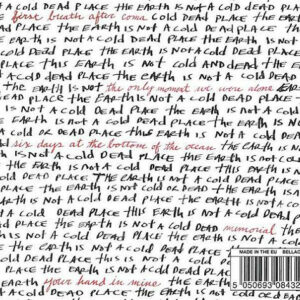 A COLD DEAD PLACE THE EARTH IS NOT A COLD DEAD PLACE
first breath after coma COLD DEAD PLACE THE EARTH
PLACE THE EARTH IS NOT A COLD DEAD PLACE THE EARTH IS
IS NOT A COLD DEAD PLACE THE EARTH IS NOT A COLD DEAD
OLD DEAD PLACE THIS EARTH IS NOT COLD AND DEAD THE E
T A COLD DEAD PLACE THE EARTH IS NOT A COLD DEAD
THE EARTH IS NOT the only moment we were alone EARTH
DEAD PLACE THE EARTH IS NOT A COLD DEAD PLACE
IS NOT A COLD DEAD PLACE THE EARTH IS NOT A COLD
COLD OR DEAD PLACE THIS EARTH IS NOT A COLD DEAD
EAD six days at the bottom of the ocean THE EARTH IS N
IS NOT A COLD DEAD PLACE THE EARTH IS NOT A COLD
OLD DEAD PLACE THE EARTH IS NOT A COLD DEAD PLA
PLACE THE EARTH IS NOT COLD OR DEAD THE EARTH IS
NOT A COLD DEAD PLACE THE EARTH IS NOT A COLD D
A COLD DEAD PLACE THIS EARTH IS NOT A COLD DEAD PLA
THE EARTH IS NOT A COLD DEAD memorial THE E
PLACE THE EARTH IS NOT A COLD DEAD PLACE
IS NOT A COLD DEAD PLACE
COLD DEAD PLACE THE EARTH IS
EARTH your hand in mine THE
PLACE THE EARTH IS NOT A COLD
MADE IN THE EU BELLA
5 050693 08432